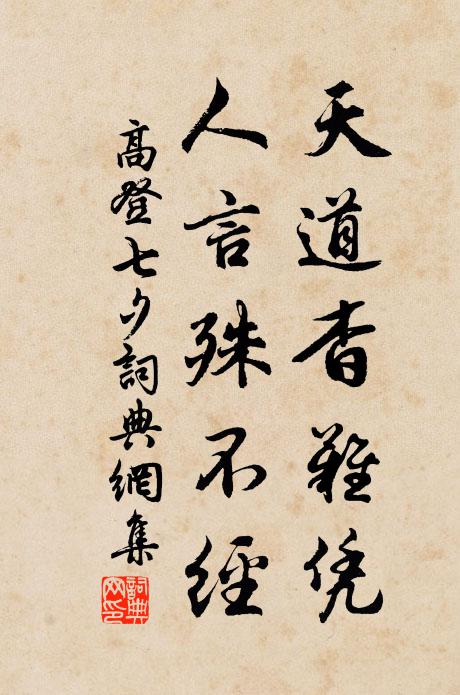 天道杳難凭
人言殊不經
高登七夕詞典網集
詞典網印